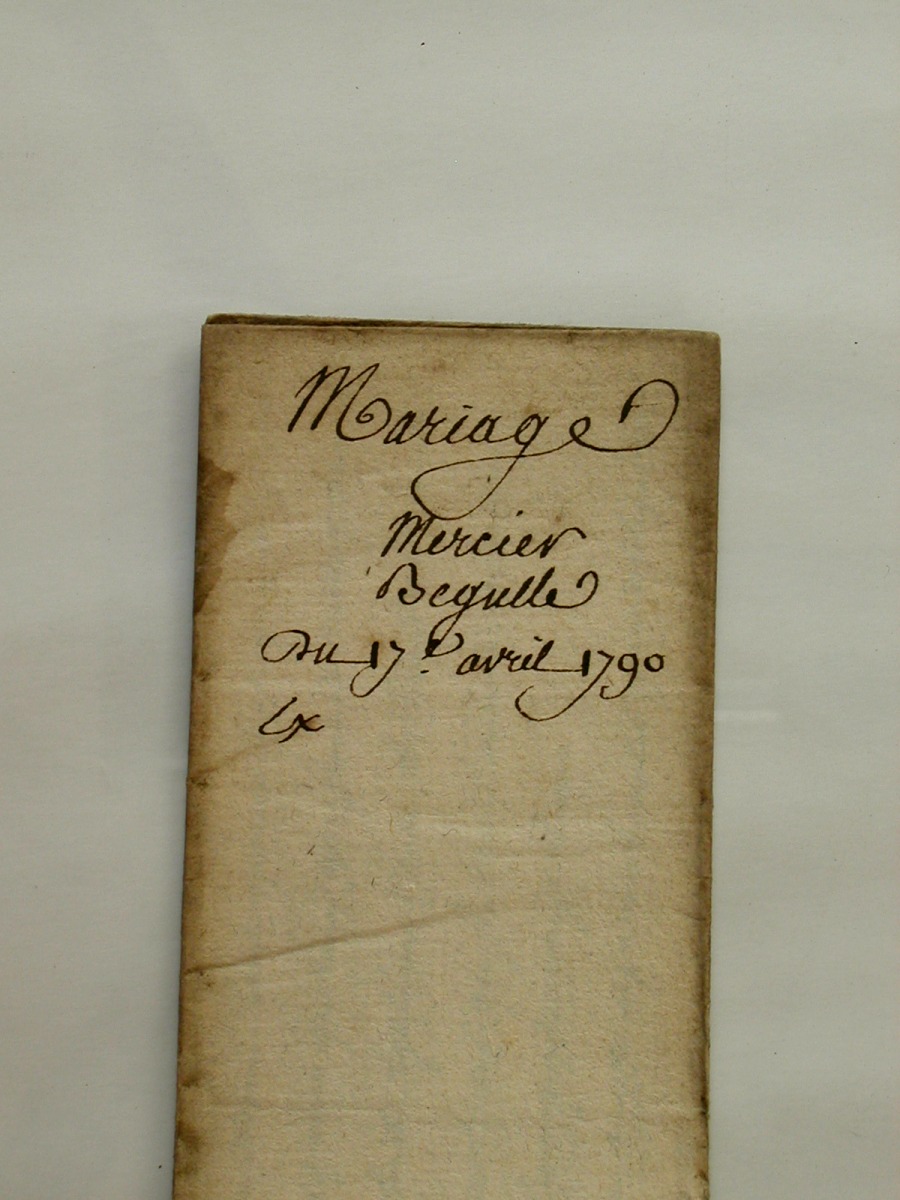 Mariage
Mercier
Begulle
Du 17.e avril 1790